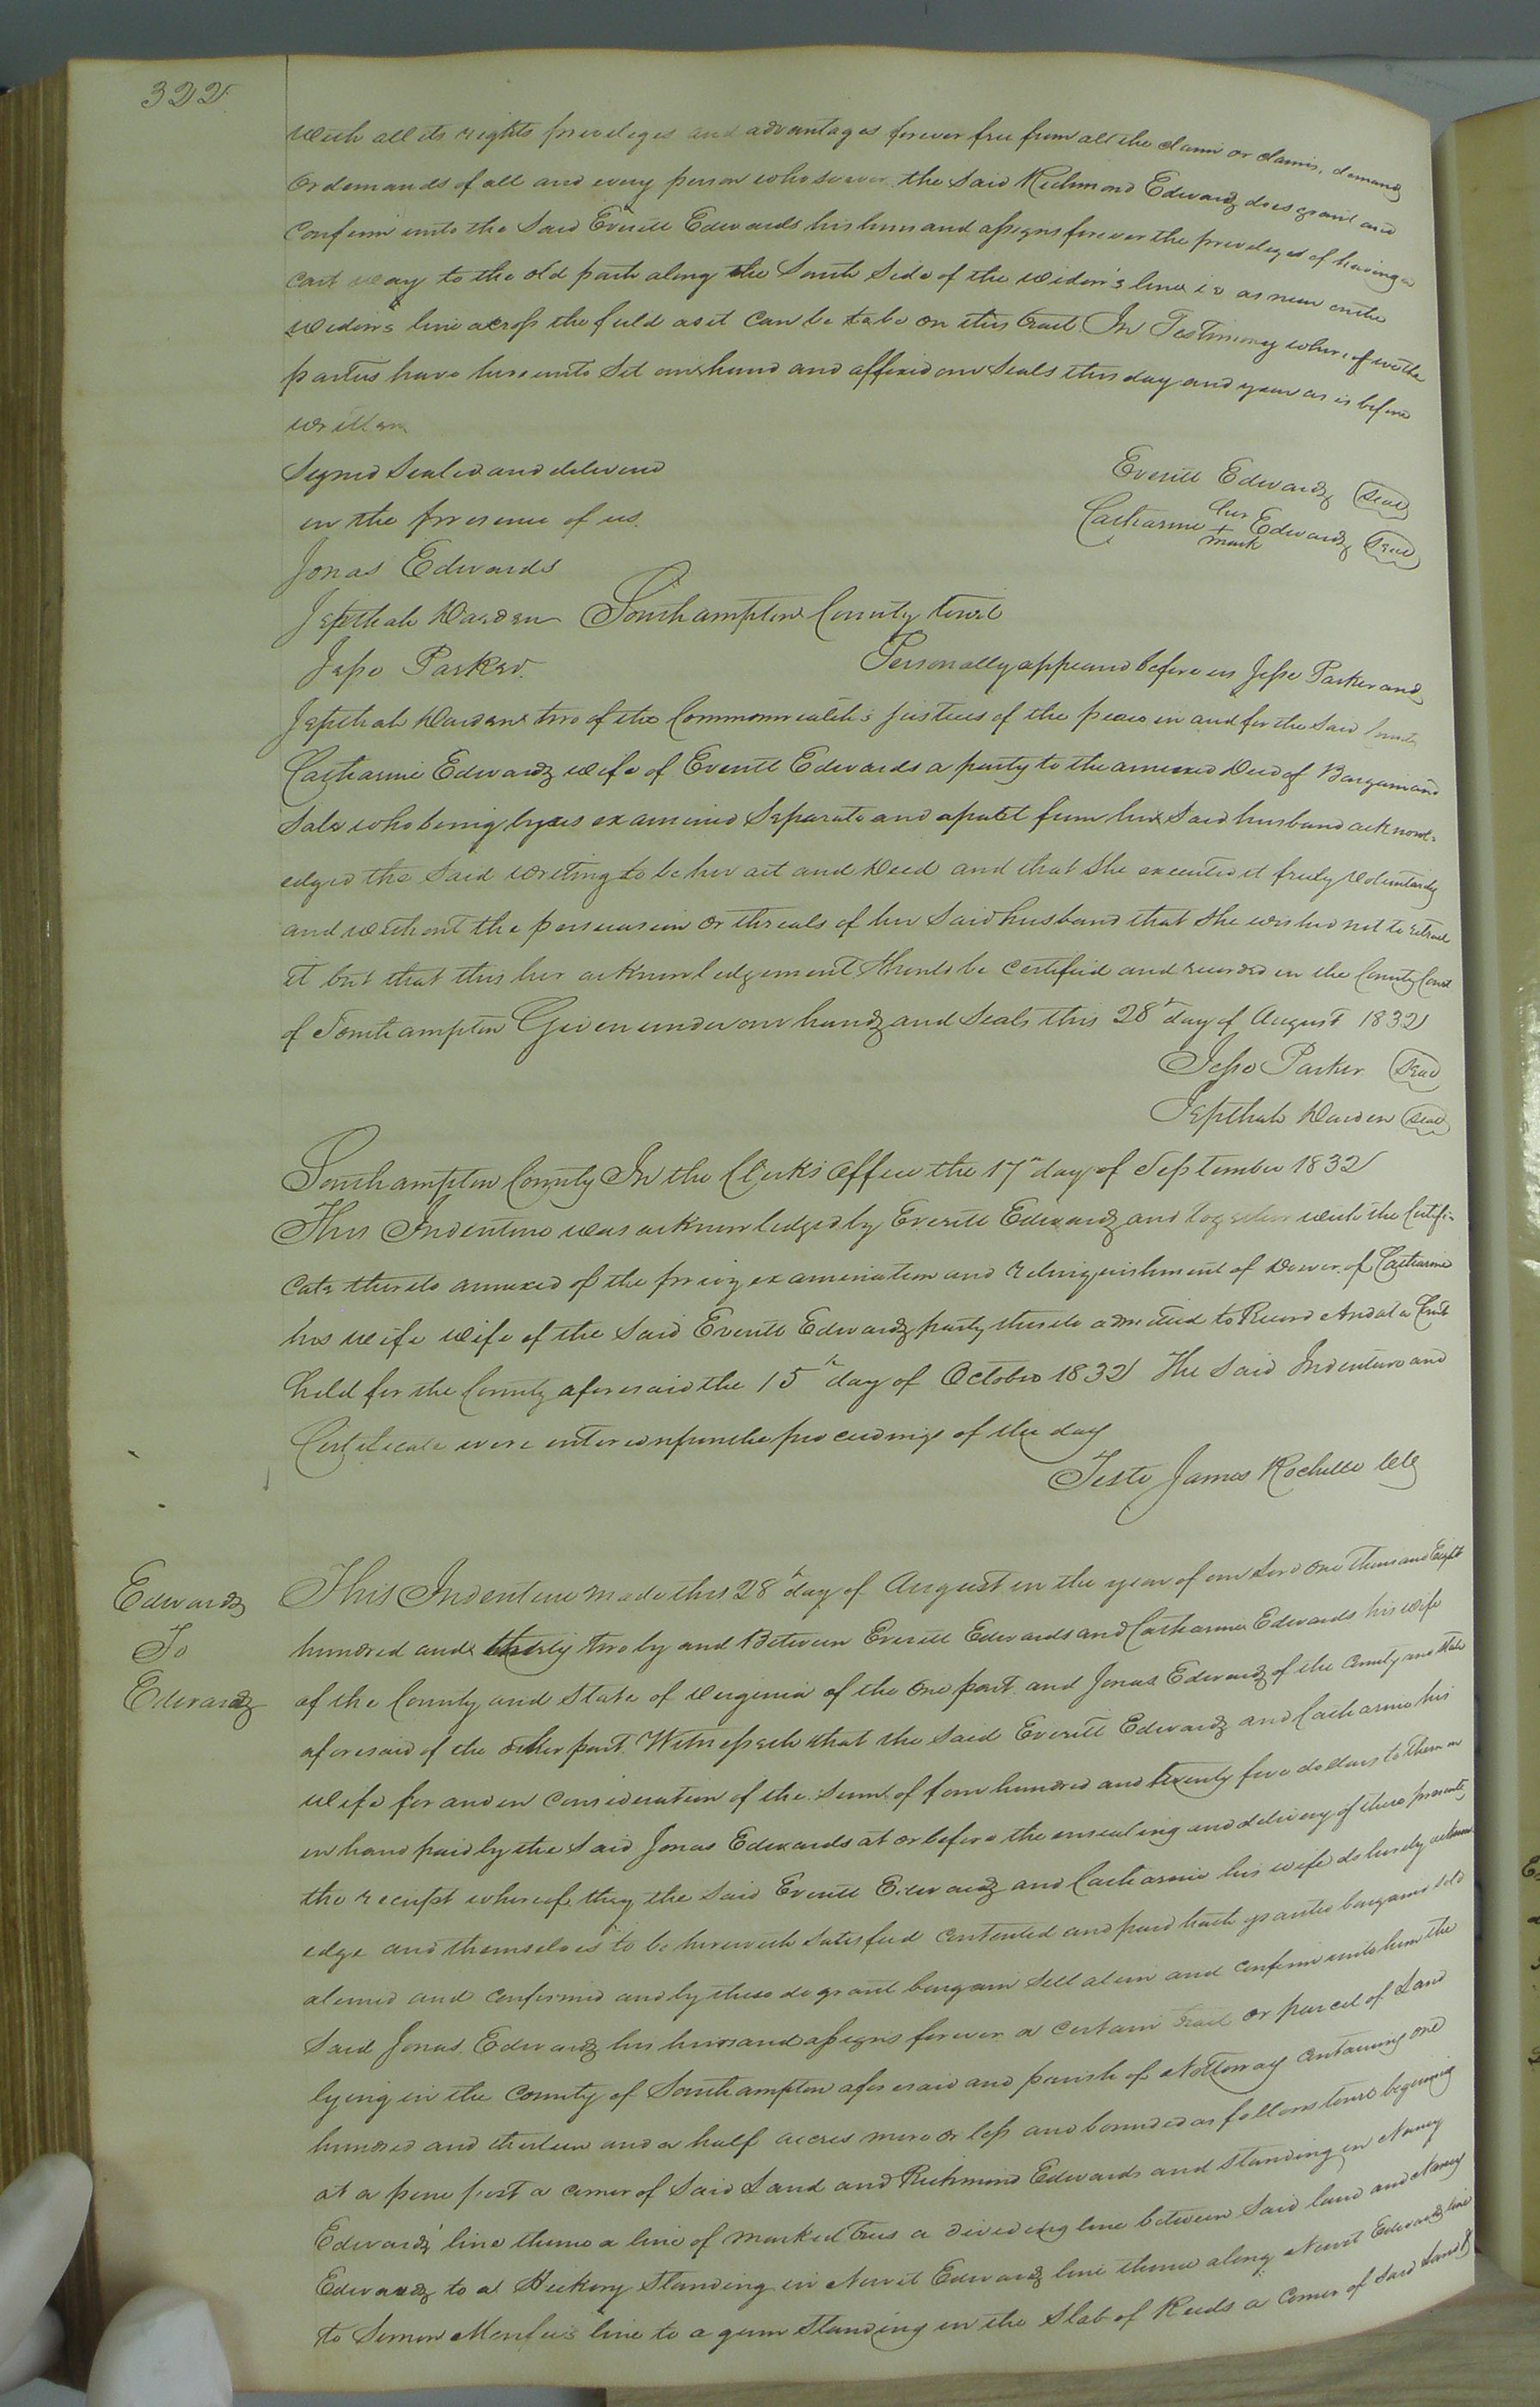 322
With all its rights priveleges and advantages forever free from all the claim or claims, demand
Or demands of all and every person whosoever. the Said Richmond Edwards does grant and
Confirm unto the Said Everitt Edwards his heirs and assigns forever the priveleges of having a
cart way to the old path along the South Side of the widow's line is as near on the
widow's line across the field as it can be to be on this tract. In Testimony whereof we the
parties have hereunto Set our hand and affixed our Seals this day and year as is before
written
Signed Sealed and delivered
in the presence of us.
Everitt Edwards Seal
Catharine her + mark Edwards Seal
Jonas Edwards
Jepthah Darden Southampton County towit
Jesse Parker. Personally appeared before us Jesse Parker and
Jepthah Darden two of the Commonwealth's justices of the peace in and for the Said County
Catharine Edwards wife of Everitt Edwards a party to the annexed Deed of Bargain and
Sale who being by us examined Separate and apart from her Said husband acknowl-
edged the Said writing to be her act and Deed and that She executed it freely Voluntarily
and without the persuasion or threats of her Said husband that She wished not to retract
it but that this her acknowledgement Should be Certified and recorded in the County Court
of Southampton Given under our hands and Seals this 28th day of August 1832
Jesse Parker Seal
Jepthah Darden Seal
Southampton County In the Clerk's Office the 17th day of September 1832
This Indenture was acknowledged by Everitt Edwards and together with the Certifi-
cate thereto annexed of the privy examination and relinquishment of Dower of Catharine
his wife wife of the Said Everitt Edwards party thereto admitted to Record And at a Court
held for the County aforesaid the 15th day of October 1832 The Said Indenture and
Certificate were entered upon the proceedings of the day
Teste James Rochelle Clk
Edwards
To
Edwards
This Indenture made this 28th day of August in the year of our Lord One thousand Eight
hundred and thirty two by and Between Everitt Edwards and Catharine Edwards his wife
of the County and State of Virginia of the One part. and Jonas Edwards of the County and State
aforesaid of the other part. Witnesseth that the Said Everitt Edwards and Catharine his
wife for and in Consideration of the Sum of four hundred and twenty five dollars to them in
in hand paid by the Said Jonas Edwards at or before the ensealing and delivery of these presents
the receipt whereof they the Said Everitt Edwards and Catharine his wife do hereby acknowl
edge and themselves to be herewith Satisfied Contented and paid hath granted bargained Sold
aliened and Confirmed and by these do grant bargain Sell alien and Confirm unto him the
Said Jonas Edwards his heirs and assigns forever a certain tract or parcel of Land
lying in the County of Southampton aforesaid and parish of Nottoway Containing one
hundred and thirteen and a half acres more or less and bounded as follows towit beginning
at a pine post a corner of Said Land and Richmond Edwards and Standing in Nancy
Edwards' line thence a line of marked trees a divideing line between Said land and Nancy
Edwards to a Hickory Standing in Newit Edwards line thence along Newit Edwards line
to Simon line to a gum Standing in the Slab of Reeds a Corner of Said Land &